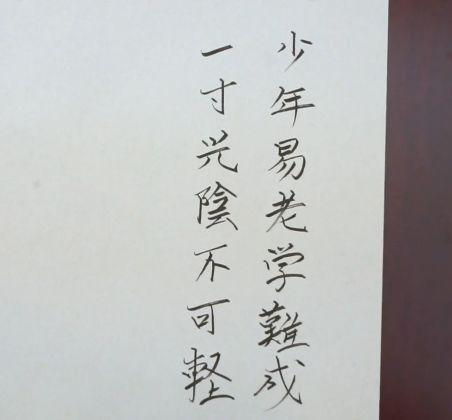 少年易老学難成
一寸光陰不可軽